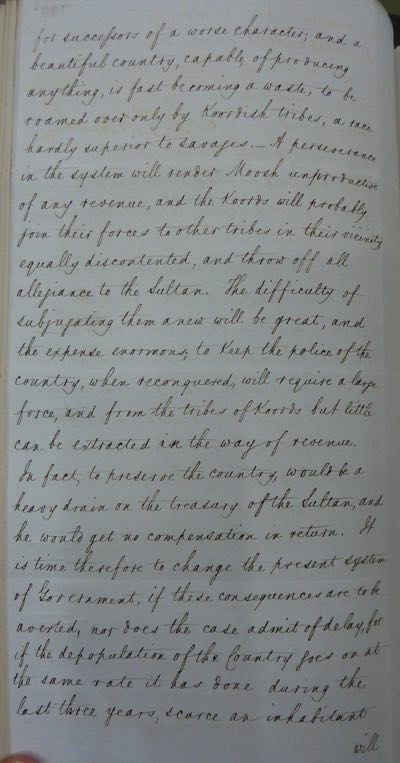 for successors of a worse character; and a
beautiful country, capable of producing
anything, is fast becoming a waste, to be
roamed over only by Koordish tribes, a race
hardly superior to savages. — A perseverance
in the system will render Moosh unproductive
of any revenue, and the Koords will probably
join their forces to other tribes in their vicinity
equally discontented, and throw off all
allegiance to the Sultan. The difficulty of
subjugating them anew will be great, and
the expense enormous; to keep the police of the
country, when reconquered, will require a large
force, and from the tribes of Koords but little
can be extracted in the way of revenue.
In fact, to preserve the country, would be a
heavy drain on the treasury of the Sultan, and
he would get no compensation in return. It
is time therefore to change the present system
of Government, if these consequences are to be
averted, nor does the case admit of delay, for
if the depopulation of the Country goes on at
the same rate it has done during the
last three years, scarce an inhabitant
will